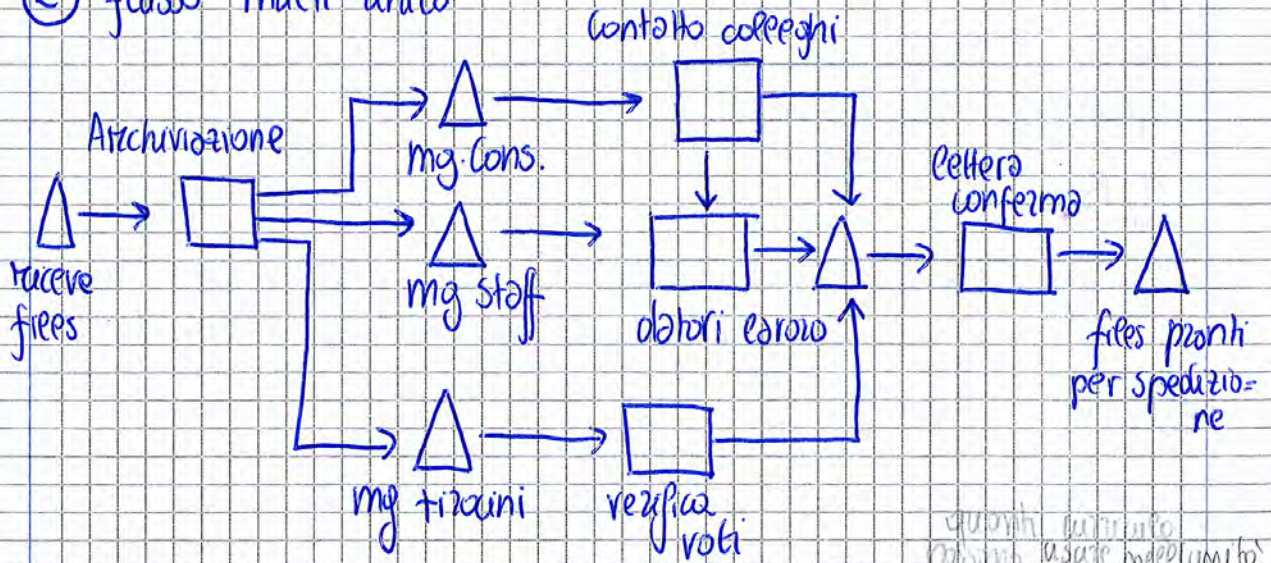 ② flusso multi unità
Contatto colleghi
Archiviazione
mg. Cons.
Lettera
conferma
riceve
files
mg staff
datori lavoro
files pronti
per spedizio=
ne
mg tirocini
verifica
voti
quanti
usare